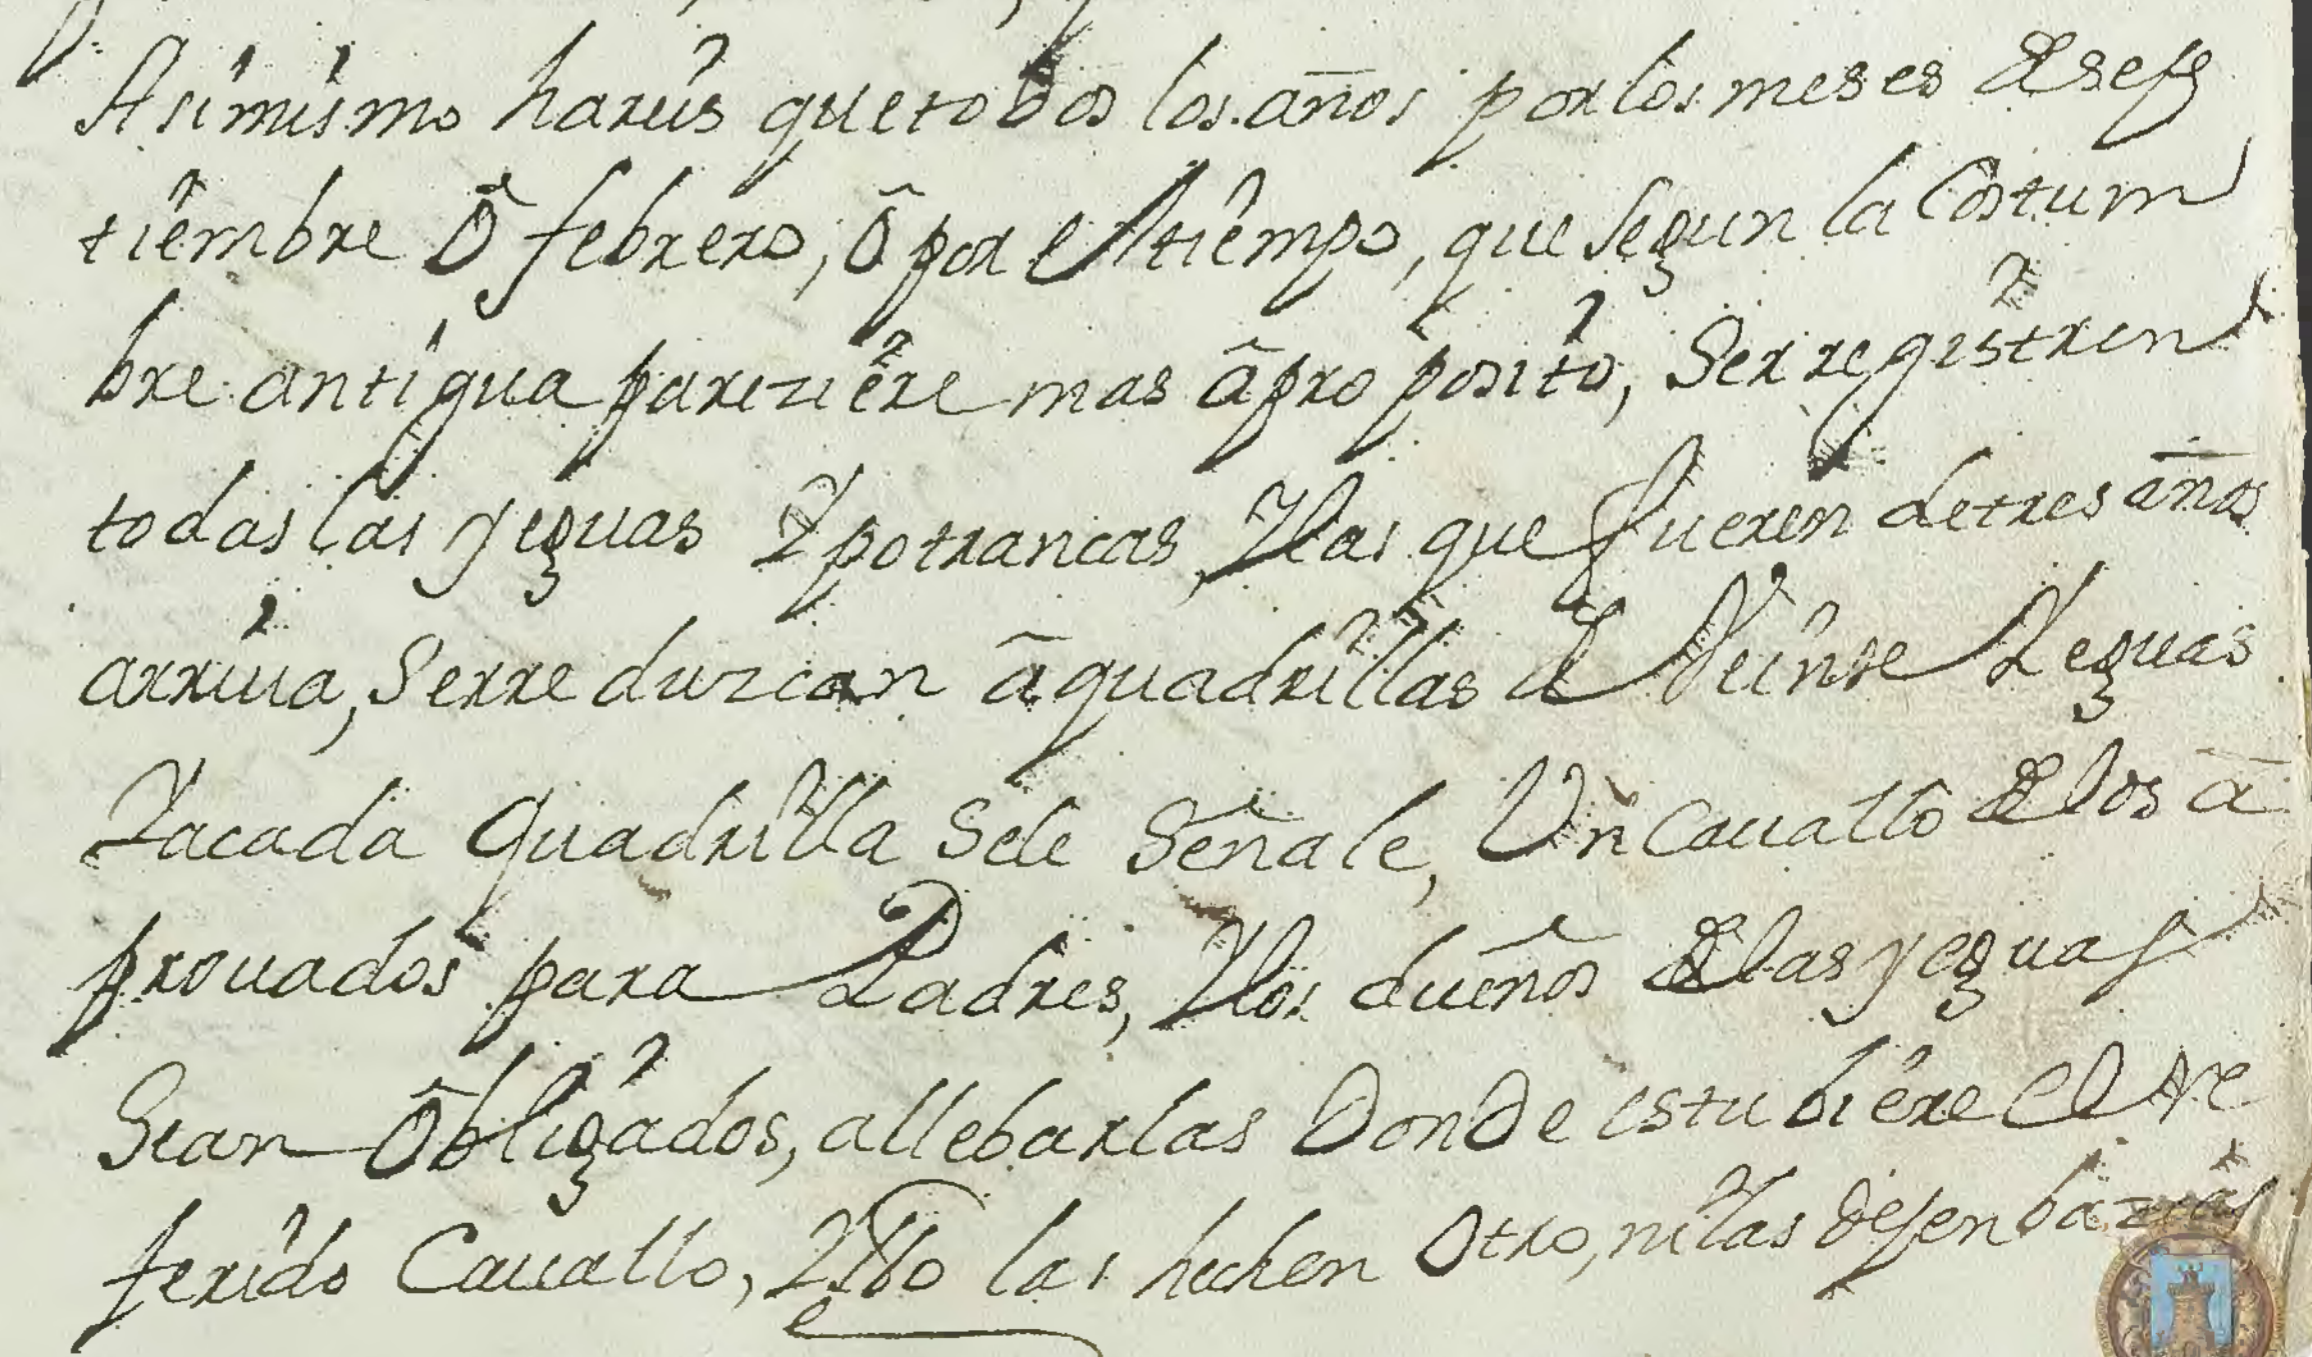 Asimismo hareis que todos los años por los meses de sep
tiembre ô febrero, ô por el tiempo, que segun la Costum
bre antigua pareziere mas â proposito, Se rregistren
todas las yeguas Y potrancas, Ylas que fueren de tres años
arriua, Se rreduzcan â quadrillas de Veinte Yeguas
Y a cada quadrilla se le señale, Un Cauallo de los â
prouados para Padres, Ylos dueños de las yeguas
Sean ôbligados, a llebarlas Donde estubiere el rre
ferido Cauallo, Y no las hechen Otro, ni las dejen bazias